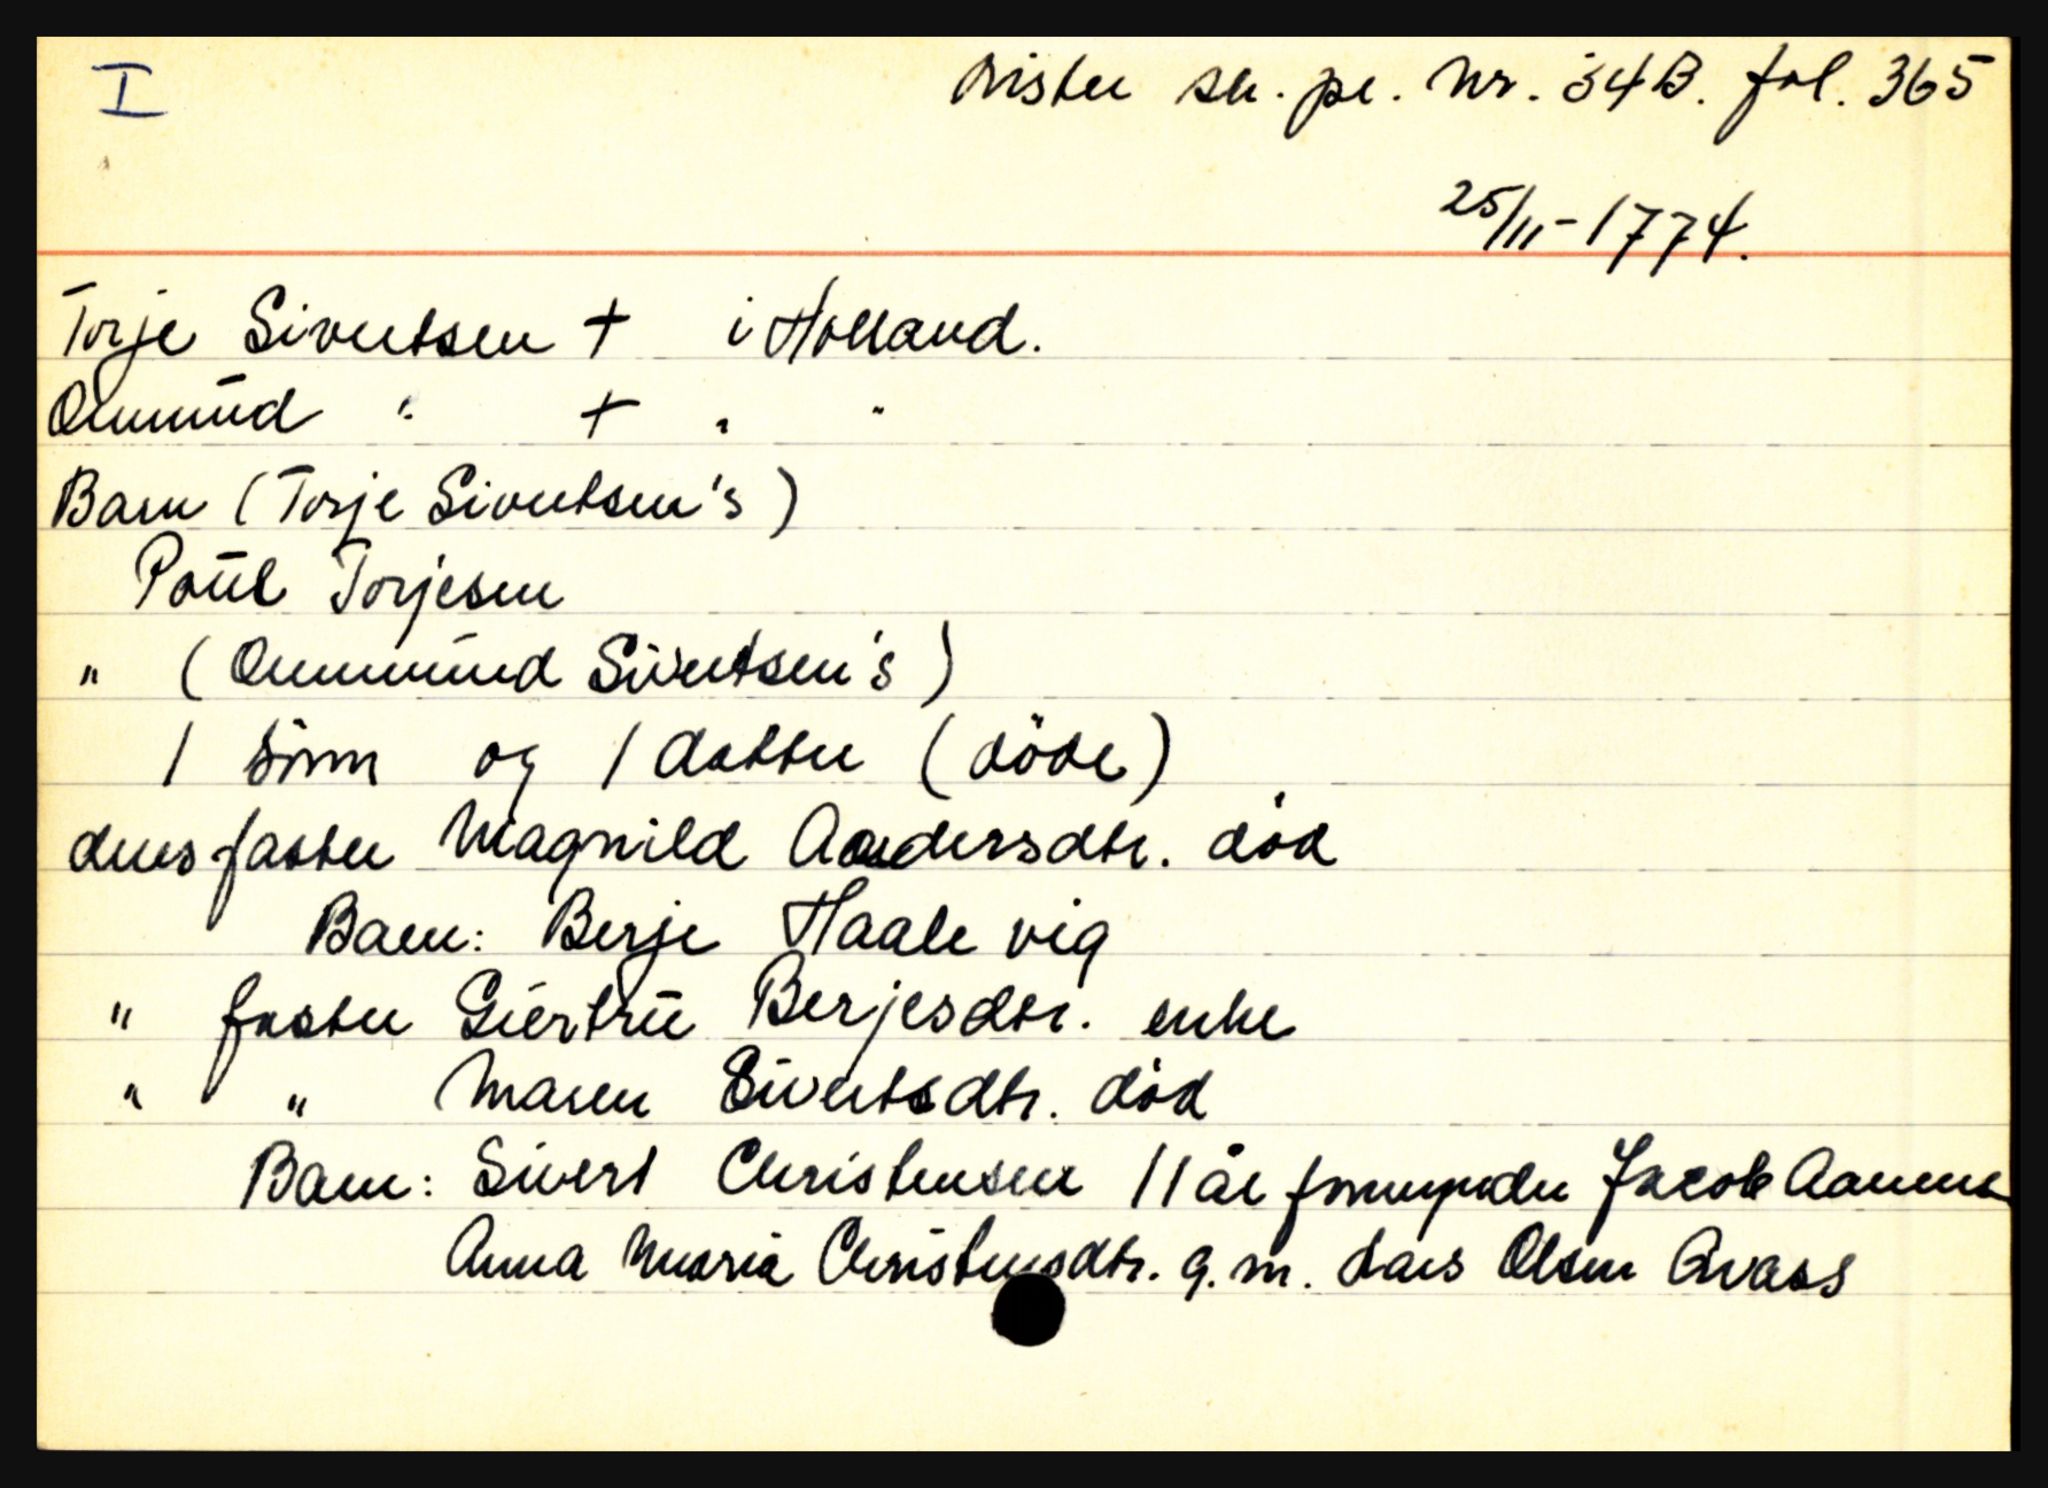 I
Lister sk. pr. nr. 34B. fol. 365
25/11-1774.
Torje Sivertsen + i Holland.
Ommund " + " "
Barn (Torje Sivertsen's)
Poul Torjesen
" (Ommund Sivertsen's)
1 sönn og 1 datter (döde)
deres faster Magnild Aandersdtr. död
Barn: Berje Haalevig
" faster Giertru Berjesdtr. enke
" " Maren Sivertsdtr. död
Barn: Sivert Christensen 11 år formynder Jacob
Anna Maria Christensdtr. g.m. Lars Olsen